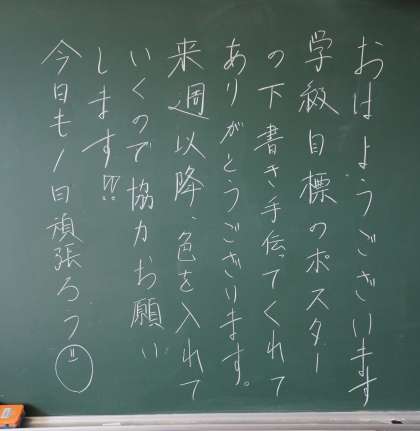 おはようございます
学級目標のポスター
の下書き手伝ってくれて
ありがとうございます。
来週以降、色を入れて
いくので協力お願い
します!!
今日も1日頑張ろう